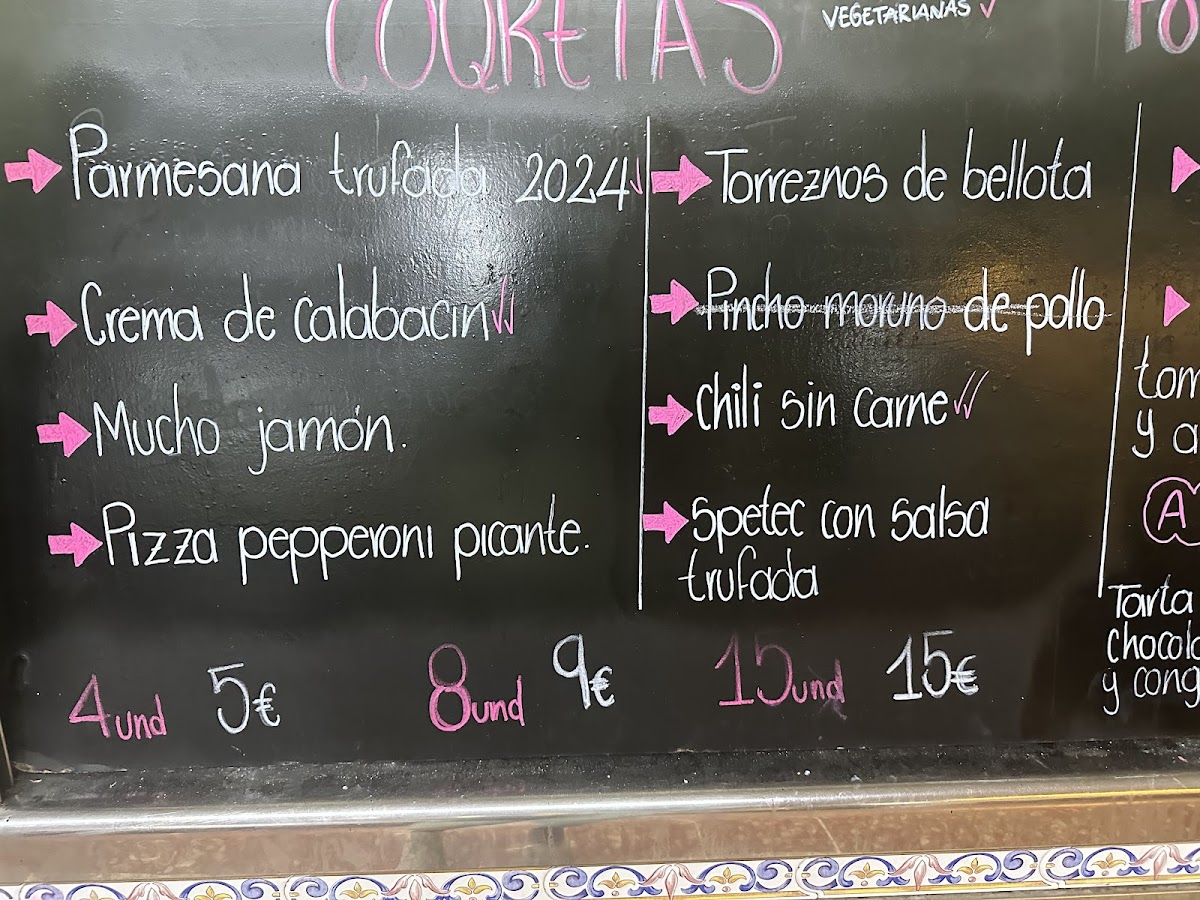 COQRETAS
VEGETARIANAS ✓
Parmesana trufada 2024✓
Crema de calabacín✓✓
Mucho jamón.
Pizza pepperoni picante.
Torreznos de bellota
Pincho moruno de pollo
Chili sin carne✓✓
Spetec con salsa
trufada
4und 5€ 8und 9€ 15und 15€
y a
A
Tarta